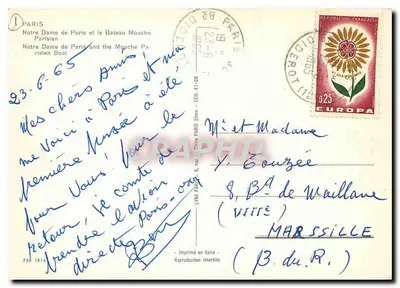 1
PARIS
Notre Dame de Paris et le Bateau Mouche
Parisien
Notre Dame de Paris and the Mouche Pa-
risien Boat
23-6-65
Mes chers Amis,
me voici à Paris et ma
première pensée a été
pour Vous, pour le
retour, je compte
prendre l'avion
directe Paris-
PARIS
DIDEROT
1965
REPUBLIQUE FRANCAISE
0,25
EUROPA
Mr et Madame
Y. Touzée
8, Bd de Waillane
(VITTE)
MARSSILLE
(B. du. R.)
Imprimé en Italie
Reproduction interdite